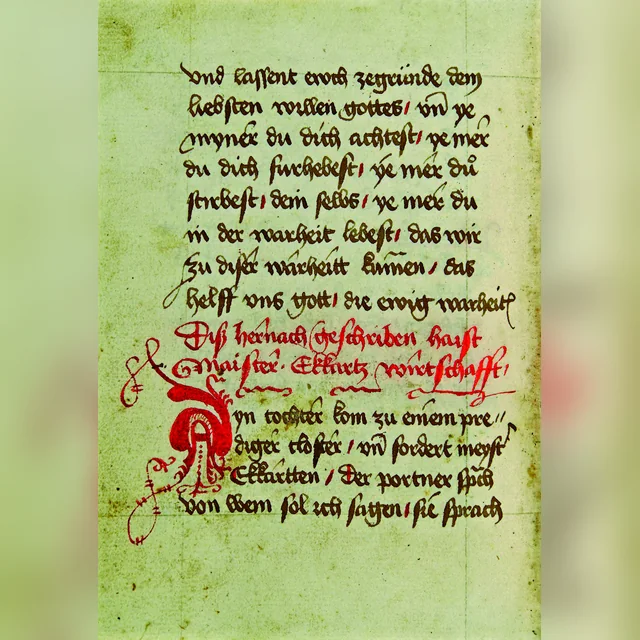 vnd lassent ewch zegrunde dem
liebsten willen gottes / vn̄ ye
myner du dich achtest / ye mer
du dich furhebest / ye mer dů
stirbest / dein selbs / ye mer du
in der warheit lebest / das wir
zu diser warheitt kumen / das
helff vns gott / die ewig warheit
Diß hernach geschriben haist
Maister · Ekkartz wirtschafft /
Ayn tochter kom zu einem pre〃
diger closter / vn̄ fordert meyst
Ekkartten / Der portner sp̄ch
von wem sol ich sagen / sie sprach